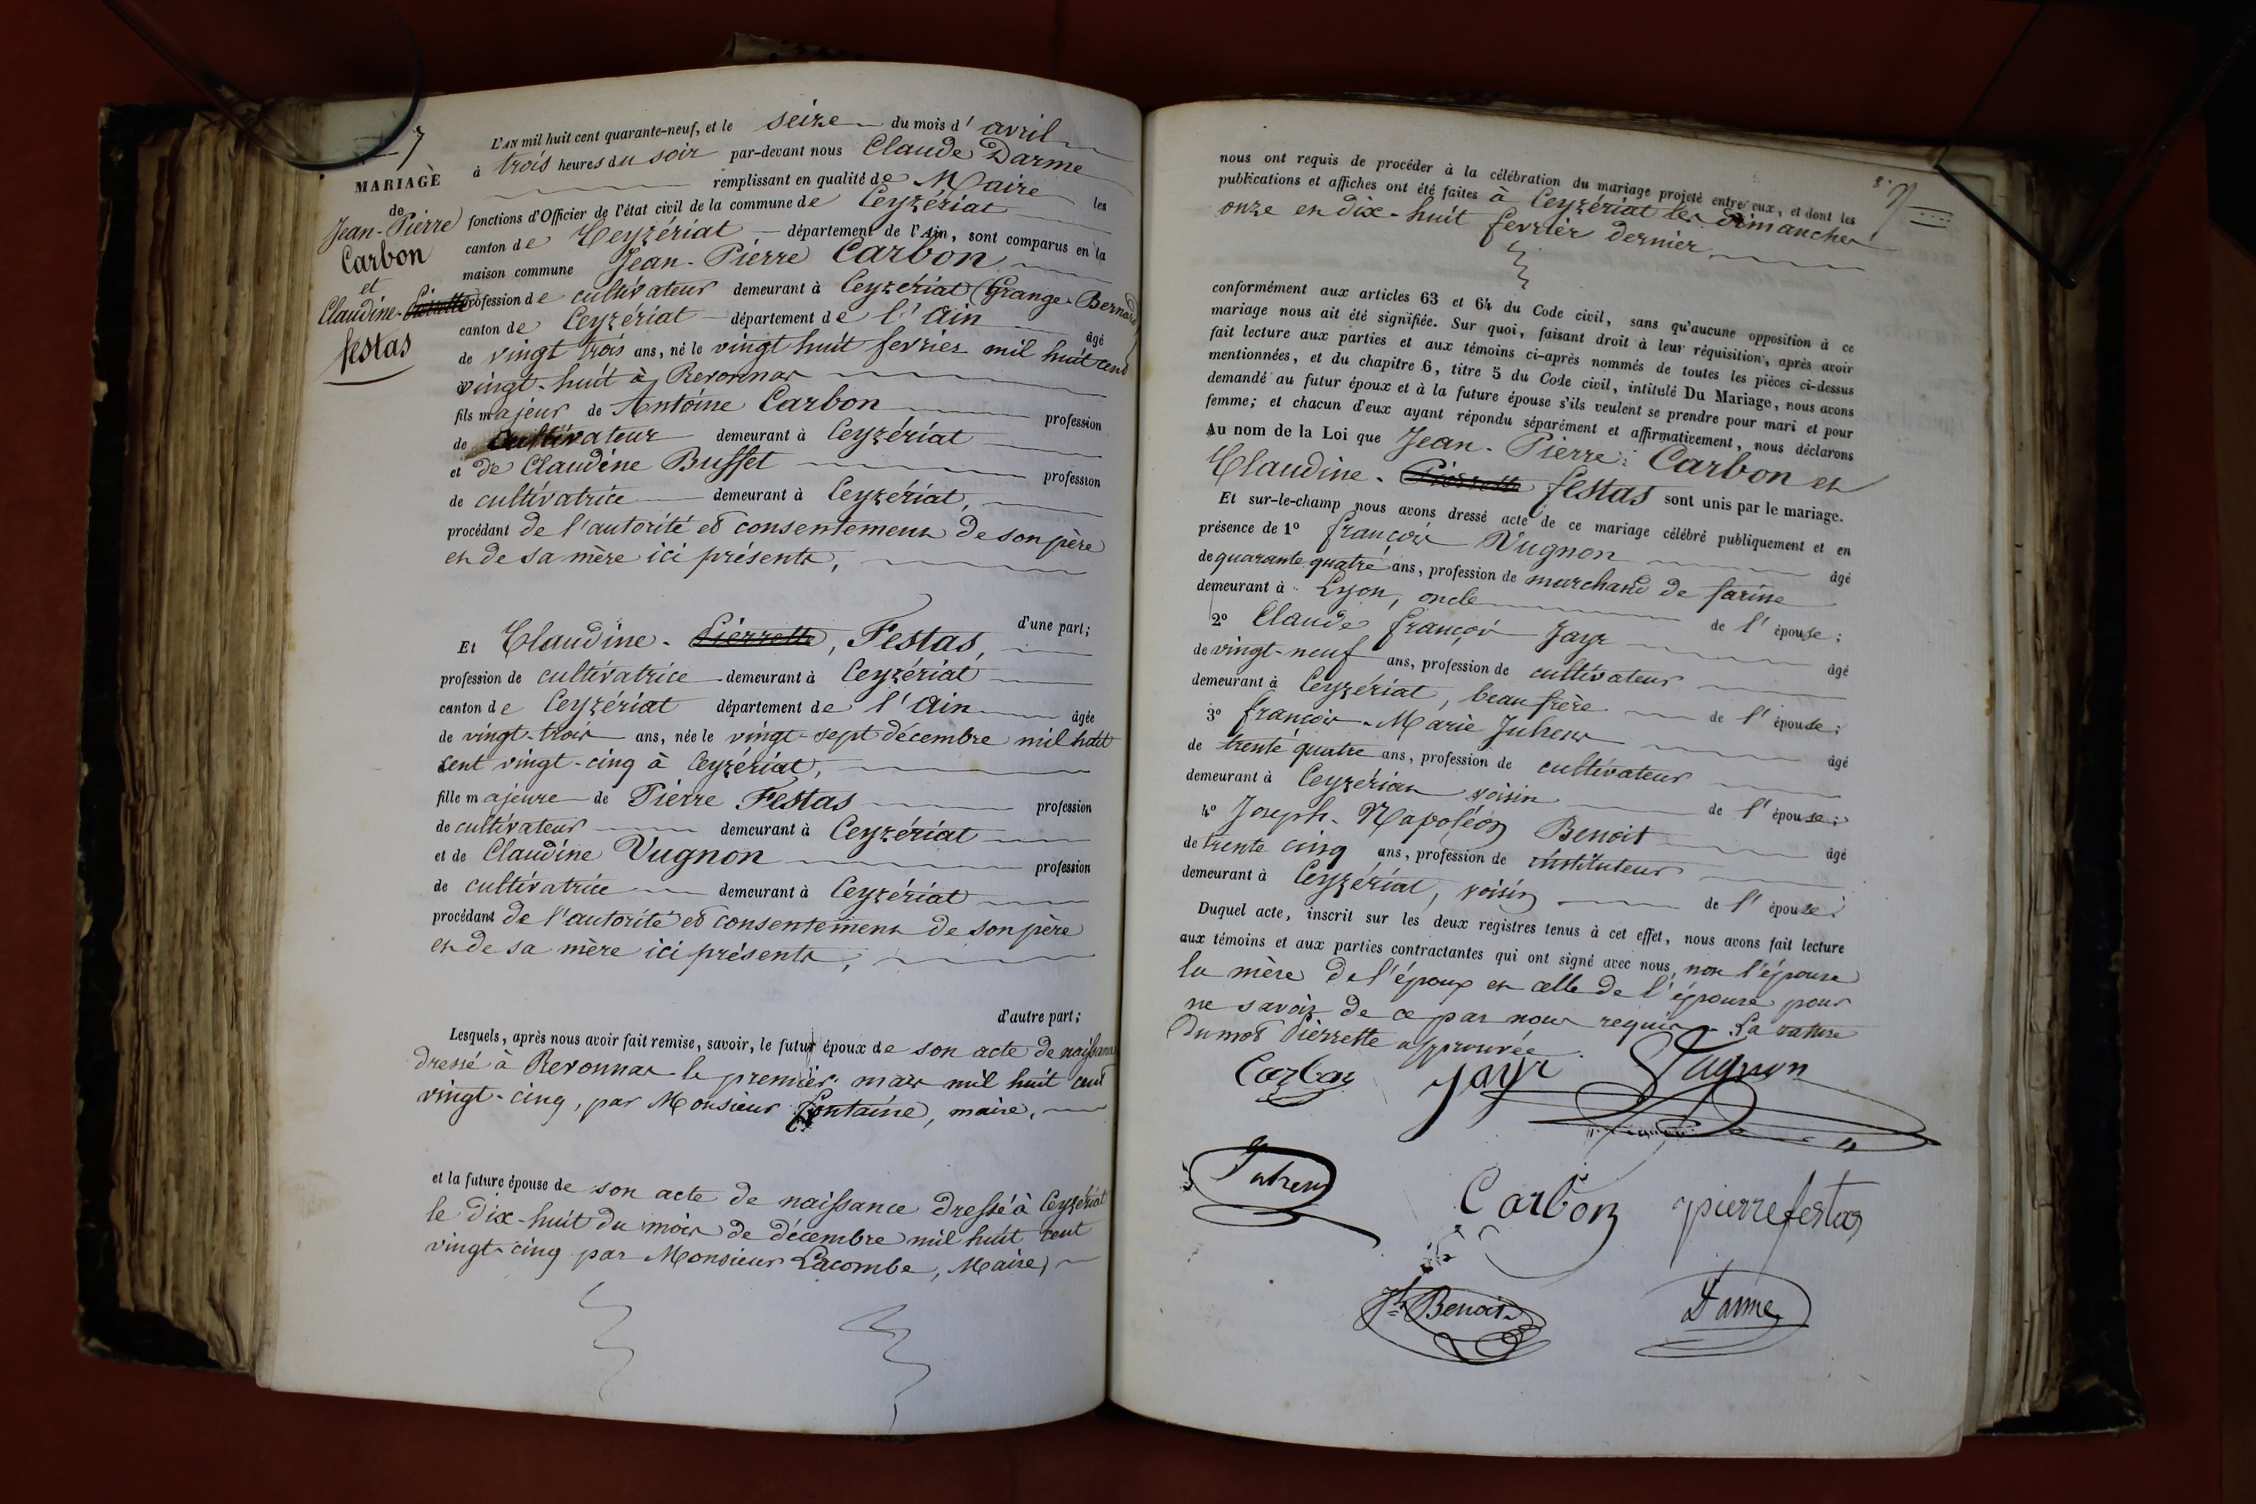 7
MARIAGE
de
Jean-Pierre
Carbon
et
Claudine-Pierrette
festas
L'AN mil huit cent quarante-neuf, et le seize du mois d'avril
à trois heures du soir par-devant nous Claude Darme
remplissant en qualité de Maire les
fonctions d'Officier de l'état civil de la commune de Ceyzériat
canton de Ceyzériat département de l'Ain, sont comparus en la
maison commune Jean-Pierre Carbon
profession de cultivateur demeurant à Ceyzériat (Grange-Bernard)
canton de Ceyzériat département de l'Ain âgé
de vingt trois ans, né le vingt huit fevrier mil huit cent
vingt-huit à Revonnas
fils majeur de Antoine Carbon profession
de cultivateur demeurant à Ceyzériat
et de Claudine Buffet profession
de cultivatrice demeurant à Ceyzériat,
procédant de l'autorité et consentement de son père
et de sa mère ici présents,
d'une part;
Et Claudine-Pierrette, Festas,
profession de cultivatrice demeurant à Ceyzériat
canton de Ceyzériat département de l'Ain âgée
de vingt-trois ans, née le vingt-sept décembre mil huit
cent vingt-cinq à Ceyzériat,
fille majeure de Pierre Festas profession
de cultivateur demeurant à Ceyzériat
et de Claudine Vugnon profession
de cultivatrice demeurant à Ceyzériat
procédant de l'autorité et consentement de son père
et de sa mère ici présents,
d'autre part;
Lesquels, après nous avoir fait remise, savoir, le futur époux de son acte de naissance
dressé à Revonnas le premier mars mil huit cent
vingt-cinq, par Monsieur Fontaine, maire,
et la future épouse de son acte de naissance dressé à Ceyzériat
le dix-huit du mois de décembre mil huit cent
vingt-cinq par Monsieur Lacombe, Maire,
nous ont requis de procéder à la célébration du mariage projeté entre eux, et dont les
publications et affiches ont été faites à Ceyzériat les dimanches
onze et dix-huit fevrier dernier,
conformément aux articles 63 et 64 du Code civil, sans qu'aucune opposition à ce
mariage nous ait été signifiée. Sur quoi, faisant droit à leur réquisition, après avoir
fait lecture aux parties et aux témoins ci-après nommés de toutes les pièces ci-dessus
mentionnées, et du chapitre 6, titre 5 du Code civil, intitulé Du Mariage, nous avons
demandé au futur époux et à la future épouse s'ils veulent se prendre pour mari et pour
femme; et chacun d'eux ayant répondu séparément et affirmativement, nous déclarons
Au nom de la Loi que Jean-Pierre Carbon et
Claudine-Pierrette festas sont unis par le mariage.
Et sur-le-champ nous avons dressé acte de ce mariage célébré publiquement et en
présence de 1º françois Vugnon âgé
de quarante quatre ans, profession de marchand de farine
demeurant à Lyon, oncle de l'épouse;
2º Claude françois Jayr âgé
de vingt-neuf ans, profession de cultivateur
demeurant à Ceyzériat, beau frère de l'épouse;
3º françois-Marie Juhem âgé
de trente quatre ans, profession de cultivateur
demeurant à Ceyzériat voisin de l'épouse;
4º Joseph-Napoléon Benoit âgé
de trente cinq ans, profession de instituteur
demeurant à Ceyzériat, voisin de l'épouse;
Duquel acte, inscrit sur les deux registres tenus à cet effet, nous avons fait lecture
aux témoins et aux parties contractantes qui ont signé avec nous, non l'épouse
la mère de l'époux et celle de l'épouse pour
ne savoir de ce par nous requis. La rature
du mot Pierrette approuvée.
Carbon Jayr Vugnon
Carbon pierre festas
Jh Benoit Darme